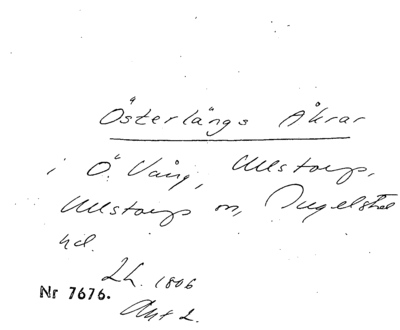 Österlängs Åkrar
i Ö. Vång, Ullstorp,
Ullstorps sn, Ingelstad
hd.
LH. 1806
Akt 2.
Nr 7676.